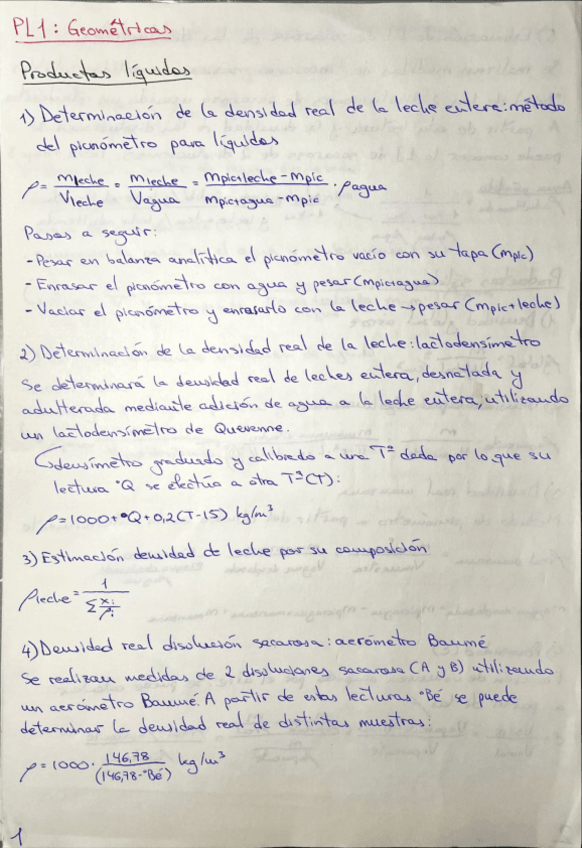 PL1: Geométricas
Productos líquidos
1) Determinación de la densidad real de la leche entera: método
del picnómetro para líquidos
ρ = mleche/Vleche = mleche/Vagua = (mpic+leche - mpic)/(mpic+agua - mpic) · ρagua
Pasos a seguir:
- Pesar en balanza analítica el picnómetro vacío con su tapa (mpic)
- Enrasar el picnómetro con agua y pesar (mpic+agua)
- Vaciar el picnómetro y enrasarlo con la leche → pesar (mpic+leche)
2) Determinación de la densidad real de la leche: lactodensímetro
Se determinará la densidad real de leches entera, desnatada y
adulterada mediante adición de agua a la leche entera, utilizando
un lactodensímetro de Quevenne.
densímetro graduado y calibrado a una Tª dada por lo que su
lectura °Q se efectúa a otra Tª (T):
ρ = 1000 + °Q + 0,2(T-15) kg/m³
3) Estimación densidad de leche por su composición
ρleche = 1/(Σ xi/ρi)
4) Densidad real disolución sacarosa: aerómetro Baumé
Se realizan medidas de 2 disoluciones sacarosa (A y B) utilizando
un aerómetro Baumé. A partir de estas lecturas °Bé se puede
determinar la densidad real de distintas muestras:
ρ = 1000 · 146,78/(146,78-°Bé) kg/m³
1